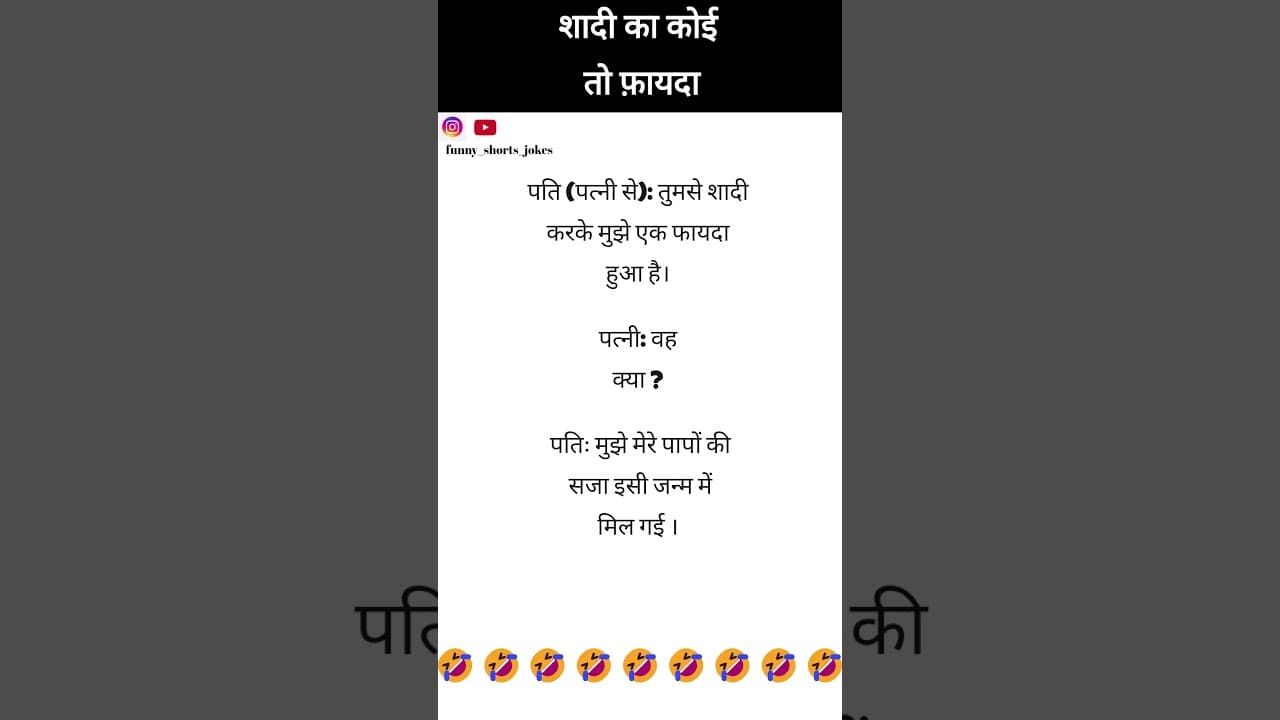 शादी का कोई
तो फ़ायदा
funny_shorts_jokes
पति (पत्नी से): तुमसे शादी
करके मुझे एक फायदा
हुआ है।
पत्नी: वह
क्या ?
पतिः मुझे मेरे पापों की
सजा इसी जन्म में
मिल गई ।
पति
की